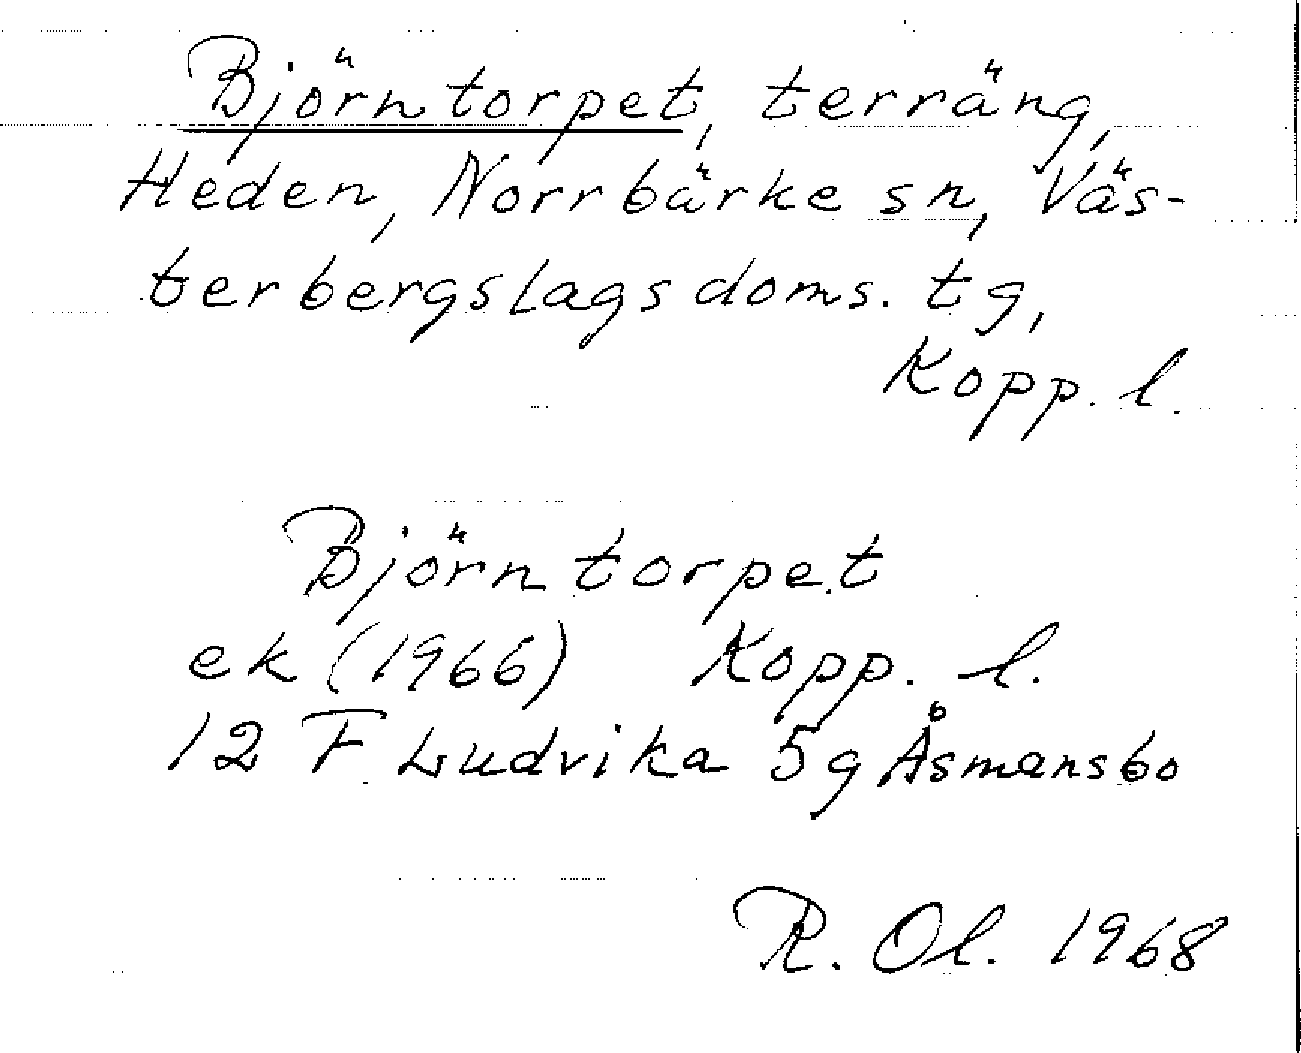 Björntorpet, terräng,
Heden, Norrbärke sn, Väs-
terbergslags doms. tg,
Kopp. l.
Björntorpet
ek (1966) Kopp. l.
12 F Ludvika 5g Åsmansbo
R. Ol. 1968